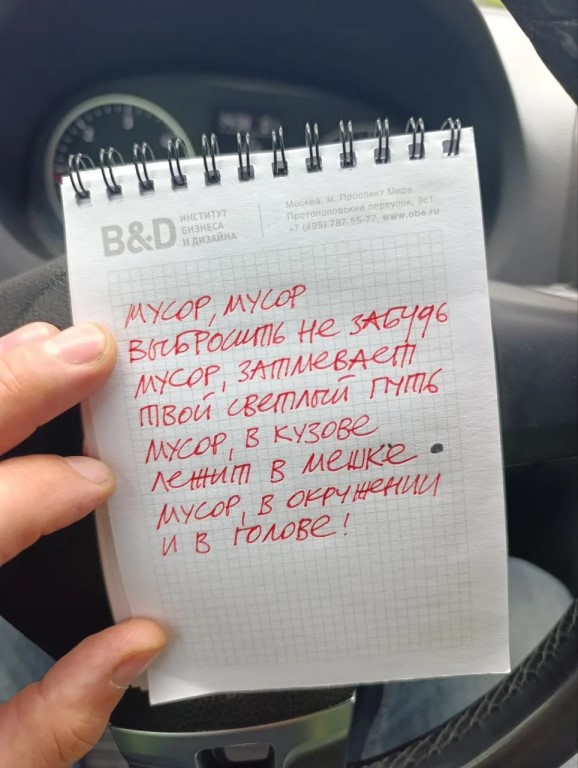 B&D
ИНСТИТУТ
БИЗНЕСА
И ДИЗАЙНА
Москва, м. Проспект Мира,
Протопоповский переулок, 9с1
+7 (495) 787-55-77, www.obe.ru
МУСОР, МУСОР
ВЫБРОСИТЬ НЕ ЗАБУДЬ
МУСОР, ЗАТМЕВАЕТ
ТВОЙ СВЕТЛЫЙ ПУТЬ
МУСОР, В КУЗОВЕ
ЛЕЖИТ В МЕШКЕ
МУСОР, В ОКРУЖЕНИИ
И В ГОЛОВЕ!